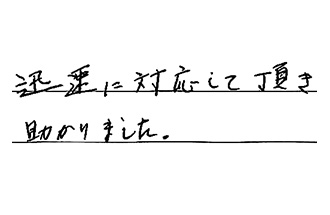 迅速に対応して頂き
助かりました。